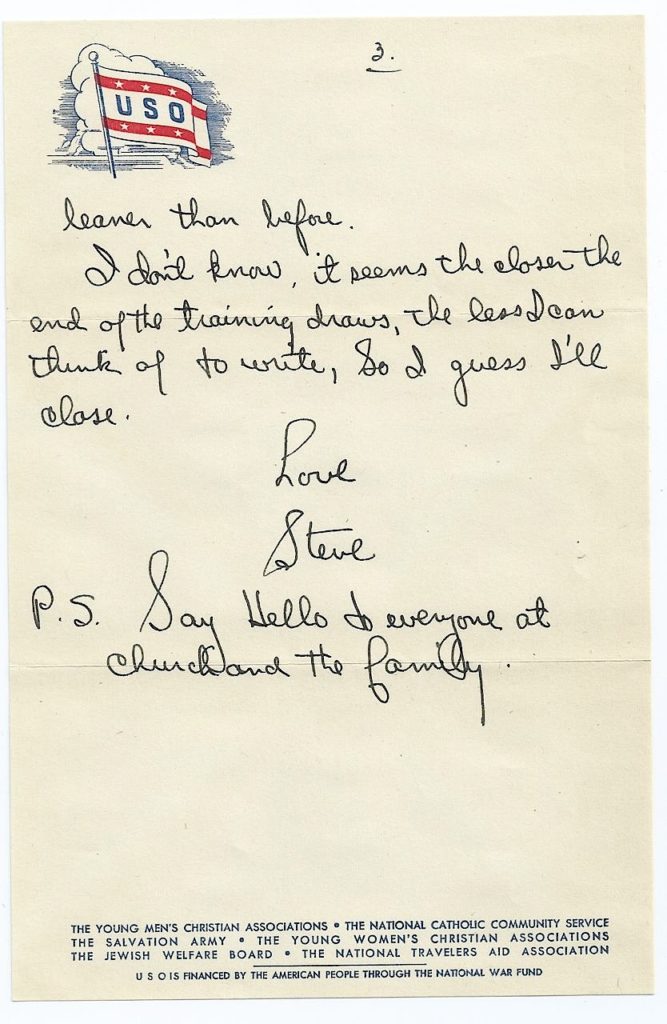 3.
USO
leaner than before.
I don't know, it seems the closer the
end of the training draws, the less I can
think of to write, So I guess I'll
close.
Love
Steve
P.S. Say Hello to everyone at
church and the family.
THE YOUNG MEN'S CHRISTIAN ASSOCIATIONS • THE NATIONAL CATHOLIC COMMUNITY SERVICE
THE SALVATION ARMY • THE YOUNG WOMEN'S CHRISTIAN ASSOCIATIONS
THE JEWISH WELFARE BOARD • THE NATIONAL TRAVELERS AID ASSOCIATION
U S O IS FINANCED BY THE AMERICAN PEOPLE THROUGH THE NATIONAL WAR FUND